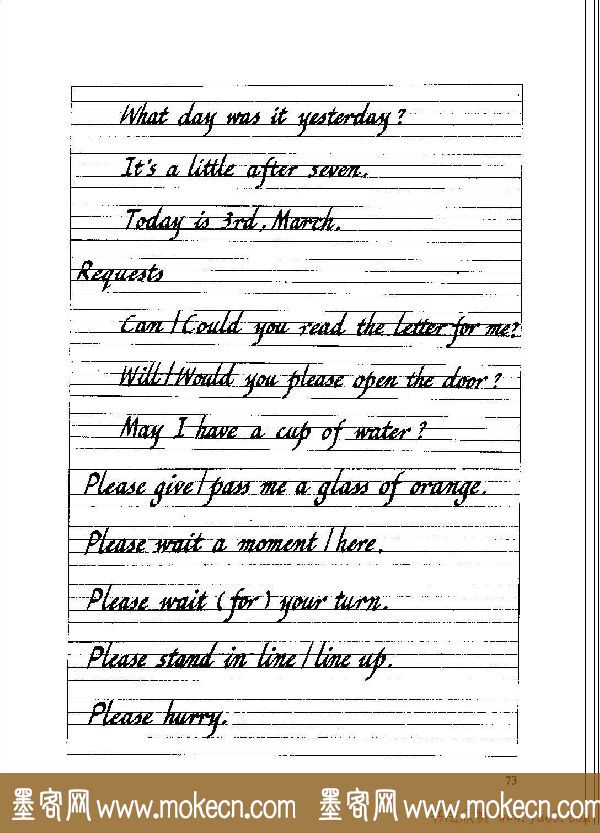 What day was it yesterday?
It's a little after seven.
Today is 3rd, March.
Requests
Can/Could you read the letter for me?
Will/Would you please open the door?
May I have a cup of water?
Please give/pass me a glass of orange.
Please wait a moment/here.
Please wait (for) your turn.
Please stand in line/line up.
Please hurry.
73
墨客网 www.mokecn.com 墨客网 www.mokecn.com